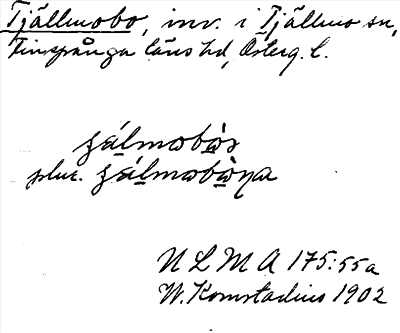 Tjällmobo, inv. i Tjällmo sn,
Finspånga läns hd, Österg. l.
ʒálmobòs
plur. ʒálmobòɳa
N L M A 175:55a
W. Komstadius 1902